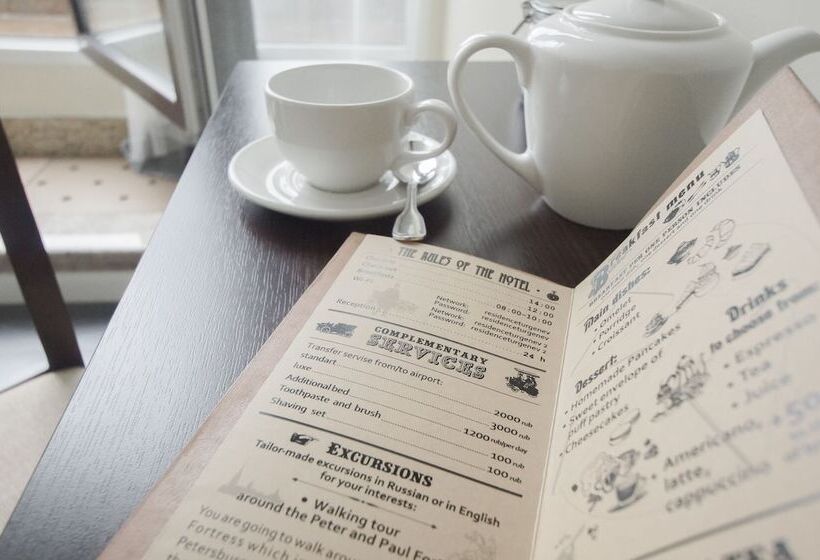 THE RULES OF THE HOTEL
14:00
12:00
Breakfasts 08:00-10:00
Wi-Fi
Network: residenceturgenev
Password: residenceturgenev
Network: residenceturgenev 2
Password: residenceturgenev 2
Reception 24 h
COMPLEMENTARY
SERVICES
Transfer servise from/to airport:
standart 2000 rub
luxe 3000 rub
Additional bed 1200 rub/per day
Toothpaste and brush 100 rub
Shaving set 100 rub
EXCURSIONS
Tailor-made excursions in Russian or in English
for your interests:
• Walking tour
around the Peter and Paul
You are going to walk
Fortress which
Petersburg
Breakfast menu
BREAKFAST FOR ONE PERSON INCLUDES
Main dishes:
• Omelet
• Porridge
• Croissant
Dessert:
• Homemade Pancakes
• Sweet envelope of
puff pastry
• Cheesecakes
Drinks
to choose from:
• Espresso
• Tea
• Americano,
latte,
cappuccino